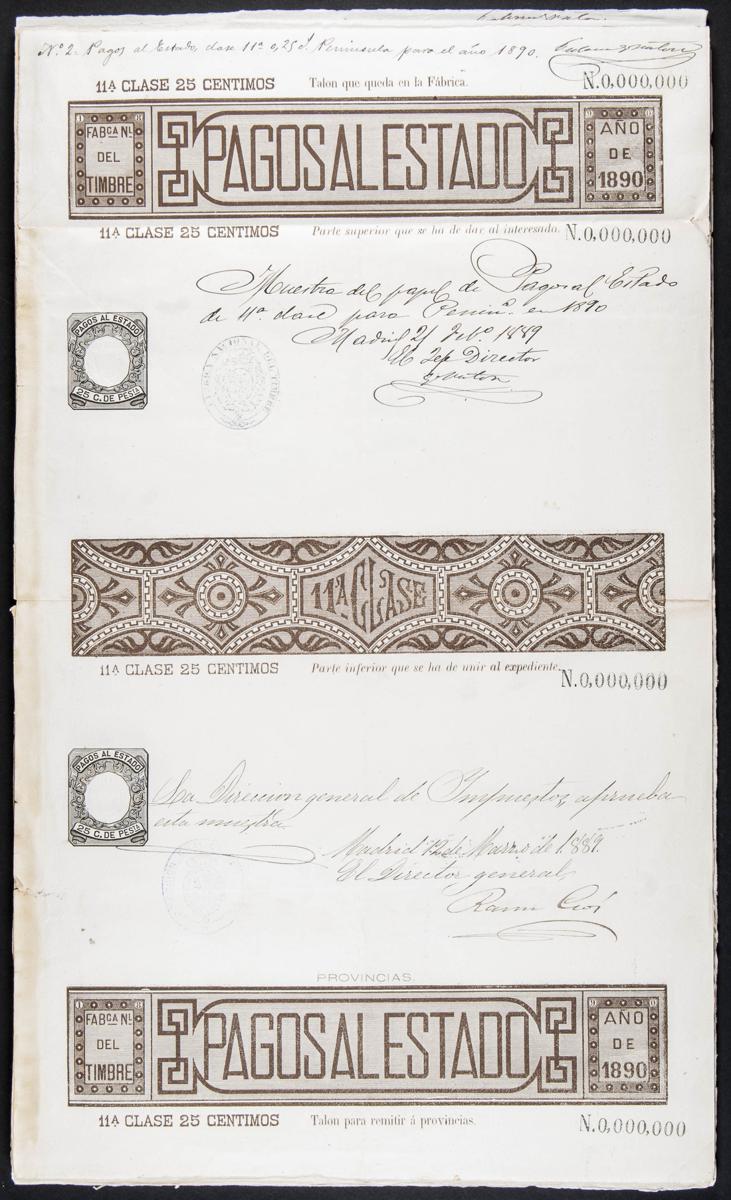 Nº 2. Pagos al Estado, clase 11ª 0,25 Peninsula para el año 1890.
11ª CLASE 25 CENTIMOS Talon que queda en la Fábrica. N.0,000,000
FABCA NL DEL TIMBRE
PAGOS AL ESTADO
AÑO DE 1890
11ª CLASE 25 CENTIMOS Parte superior que se ha de dar al interesado. N.0,000,000
Muestra del papel de Pagos al Estado
de 11ª clase para Peninª en 1890
Madrid 21 Febº 1889
El Director
PAGOS AL ESTADO
25 C. DE PESTA
11ª CLASE
11ª CLASE 25 CENTIMOS Parte inferior que se ha de unir al expediente. N.0,000,000
PAGOS AL ESTADO
25 C. DE PESTA
La Direccion general de Impuestos aprueba
esta muestra
Madrid 12 de Marzo de 1889.
El Director general,
PROVINCIAS.
FABCA NL DEL TIMBRE
PAGOS AL ESTADO
AÑO DE 1890
11ª CLASE 25 CENTIMOS Talon para remitir á provincias. N.0,000,000